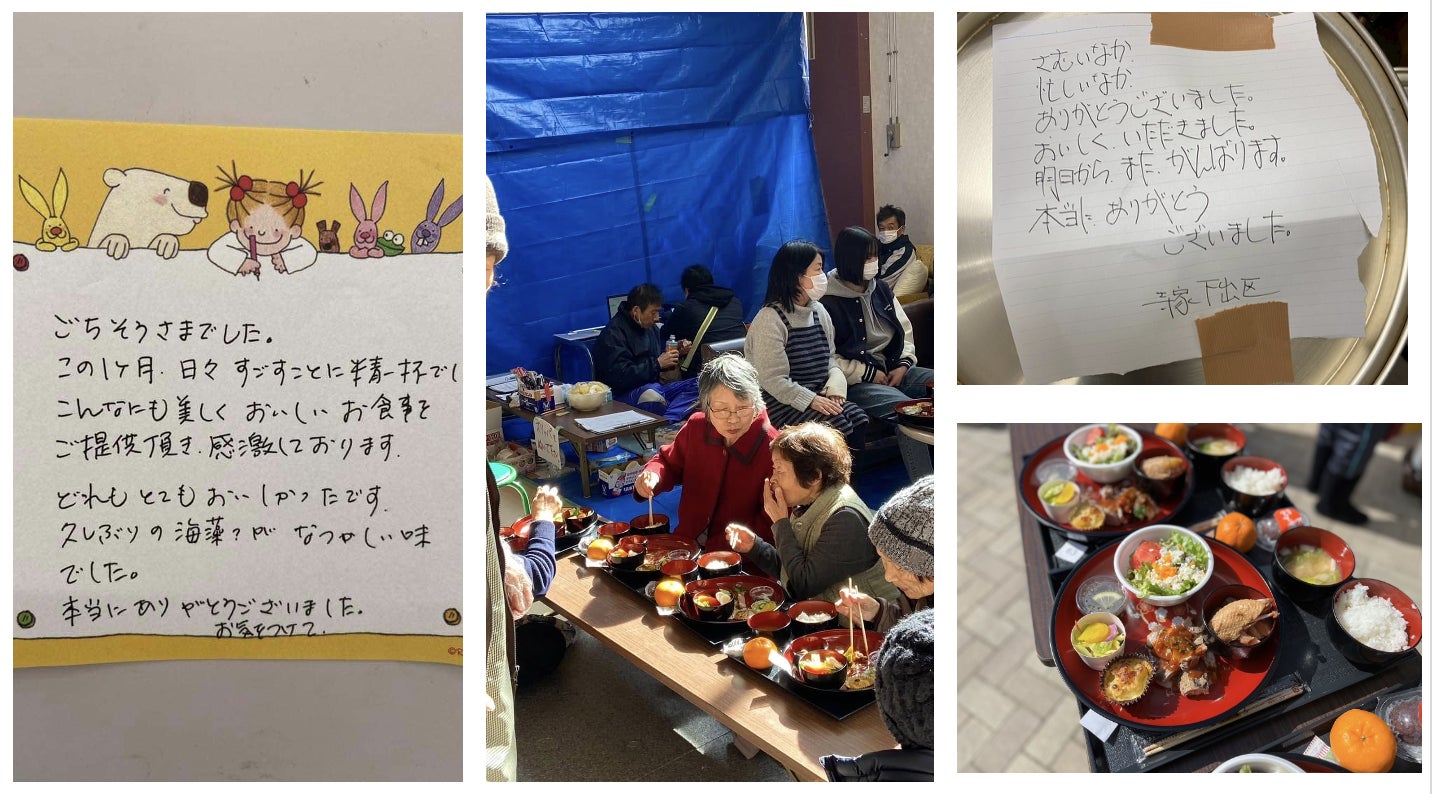 ごちそうさまでした。
この1ヶ月、日々 すごすことに精一杯でし
こんなにも美しく おいしい お食事を
ご提供頂き、感激しております。
どれも とても おいしかったです。
久しぶりの 海藻?が なつかしい味
でした。
本当に ありがとうございました。
お気をつけて、
さむいなか
忙しいなか
ありがとうございました。
おいしく、いただきました。
明日から、また、がんばります。
本当に ありがとう
ございました。
下出区